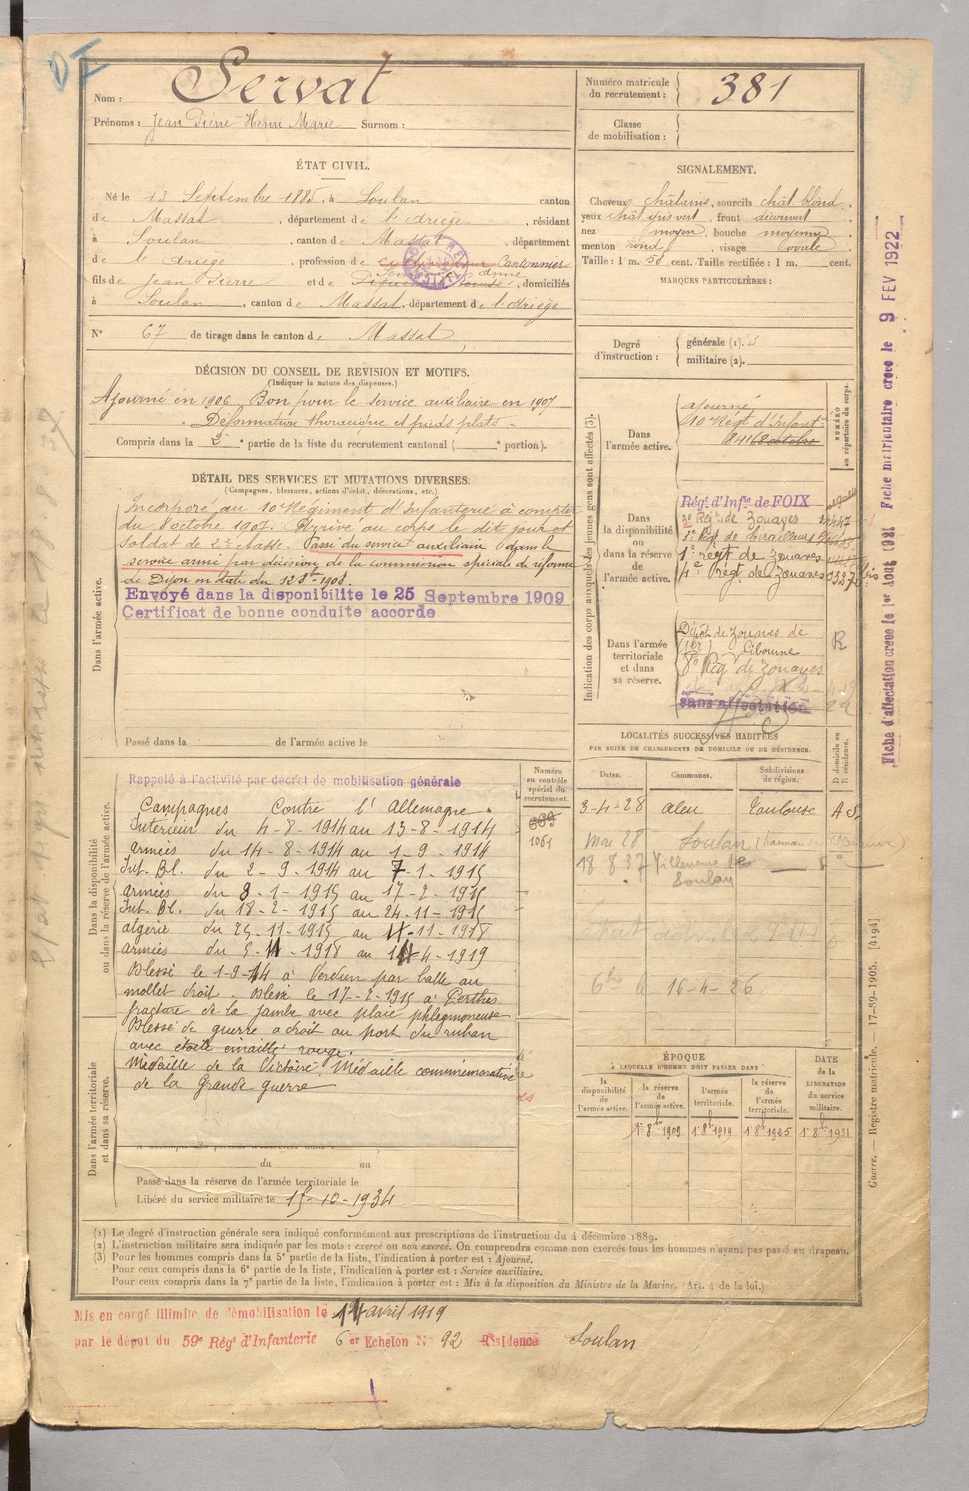 Nom : Servat
Prénoms : Jean Pierre Henri Marie Surnom :
Numéro matricule du recrutement : 381
Classe de mobilisation :
ÉTAT CIVIL.
Né le 13 Septembre 1885, à Soulan canton
de Massat, département de l'Ariège, résidant
à Soulan, canton de Massat, département
de l'Ariège, profession de cultivateur Cantonnier
fils de Jean Pierre et de domiciliés
à Soulan, canton de Massat, département de l'Ariège
N° 67 de tirage dans le canton de Massat
SIGNALEMENT.
Cheveux châtains, sourcils chât blond.
yeux chât gris vert, front découvert
nez moyen, bouche moyenne
menton rond, visage ovale.
Taille : 1 m. 58 cent. Taille rectifiée : 1 m. cent.
MARQUES PARTICULIÈRES :
Degré d'instruction : générale (1). 3
militaire (2).
DÉCISION DU CONSEIL DE REVISION ET MOTIFS.
(Indiquer la nature des dispenses.)
Ajourné en 1906 Bon pour le service auxiliaire en 1907
Déformation thoracique et pieds plats -
Compris dans la 5e partie de la liste du recrutement cantonal ( portion).
DÉTAIL DES SERVICES ET MUTATIONS DIVERSES.
(Campagnes, blessures, actions d'éclat, décorations, etc.)
Dans l'armée active.
Incorporé au 10e Régiment d'Infanterie à compter
du 8 octobre 1907. Arrivé au corps le dit jour et
Soldat de 2e classe. Passé du service auxiliaire dans le
service armé par décision de la commission spéciale de réforme
de Dijon en date du 12 8bre 1908.
Envoyé dans la disponibilite le 25 Septembre 1909
Certificat de bonne conduite accorde
Passé dans la de l'armée active le
Indication des corps auxquels les jeunes gens sont affectés (3).
NUMÉRO au répertoire du corps.
Dans l'armée active.
ajourné
10e Régt d'Infant
Dans la disponibilité ou dans la réserve de l'armée active.
Régt d'Infie de FOIX
3e Régt de Zouaves
1er Rég. de Tirailleurs
1er régt de Zouaves
4e Régt de Zouaves 3327 bis
Dans l'armée territoriale et dans sa réserve.
Dépôt de Zouaves de
(1er) Libourne R
8e Rég de Zouaves
Sans affectation
Fiche matriculaire creee le 9 FEV 1922
Fiche d'affectation creee le 1er Aout 1921
LOCALITÉS SUCCESSIVES HABITÉES
PAR SUITE DE CHANGEMENTS DE DOMICILE OU DE RÉSIDENCE.
Dates. Communes. Subdivisions de région. D domicile ou R résidence.
3-4-28 Aleu Toulouse
Mai 28 Soulan
18 8 37
Soulan
16-4-26
Dans la disponibilité ou dans la réserve de l'armée active.
Numéro au contrôle spécial du recrutement.
1061
Rappelé à l'activité par décret de mobilisation générale
Campagnes Contre l'Allemagne.
Intérieur du 4-8-1914 au 13-8-1914
armées du 14-8-1914 au 1-9-1914
Int. Bl. du 2-9-1914 au 7-1-1915
armées du 8-1-1915 au 17-2-1915
Int. Bl. du 18-2-1915 au 24-11-1915
algérie du 25-11-1915 au 4-11-1918
armées du 5-11-1918 au 14-4-1919
Blessé le 1-9-14 à Verdun par balle au
mollet droit. Blessé le 17-2-1915 à Perthes
fracture de la jambe avec plaie phlegmoneuse
Blessé de guerre a droit au port du ruban
avec étoile émaillé rouge.
Médaille de la Victoire, Médaille commémorative
de la Grande guerre
Dans l'armée territoriale et dans sa réserve.
du au
Passé dans la réserve de l'armée territoriale le
Libéré du service militaire le 15-10-1934
ÉPOQUE
À LAQUELLE L'HOMME DOIT PASSER DANS
la disponibilité de l'armée active. la réserve de l'armée active. l'armée territoriale. la réserve de l'armée territoriale.
DATE de la LIBÉRATION du service militaire.
1er 8b 1909 1er 8b 1919 1er 8b 1925 1er 8b 1931
Guerre. — Registre matricule. 17-89-1905. [4194]
(1) Le degré d'instruction générale sera indiqué conformément aux prescriptions de l'instruction du 4 décembre 1889.
(2) L'instruction militaire sera indiquée par les mots : exercé ou non exercé. On comprendra comme non exercés tous les hommes n'ayant pas passé en drapeau.
(3) Pour les hommes compris dans la 5e partie de la liste, l'indication à porter est : Ajourné.
Pour ceux compris dans la 6e partie de la liste, l'indication à porter est : Service auxiliaire.
Pour ceux compris dans la 7e partie de la liste, l'indication à porter est : Mis à la disposition du Ministre de la Marine. (Art. 4 de la loi.)
Mis en congé illimite de démobilisation le 14 avril 1919
par le dépot du 59e Régt d'Infanterie 6er Echelon N° 92 Résidence Soulan